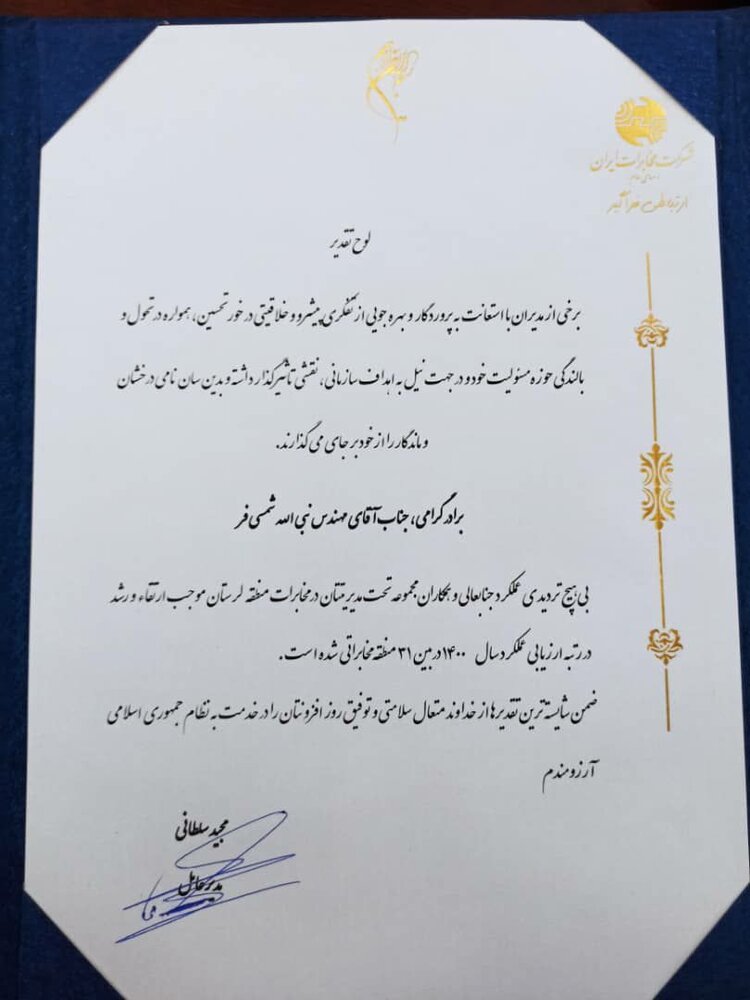 شرکت مخابرات ایران
ارتباطی فراگیر
لوح تقدیر
برخی از مدیران با استعانت به پروردگار و بهره جویی از تفکری پیشرو و خلاقیتی در خور تحسین، همواره در تحول و
بالندگی حوزه مسئولیت خود و در جهت نیل به اهداف سازمانی، نقشی تأثیرگذار داشته و بدین سان نامی درخشان
و ماندگار را از خود بر جای می گذارند.
برادر گرامی، جناب آقای مهندس نبی الله شمسی فر
بی هیچ تردیدی عملکرد جنابعالی و همکاران مجموعه تحت مدیریتتان در مخابرات منطقه لرستان موجب ارتقاء و رشد
در رتبه ارزیابی عملکرد سال ۱۴۰۰ در بین ۳۱ منطقه مخابراتی شده است.
ضمن شایسته ترین تقدیرها از خداوند متعال سلامتی و توفیق روز افزونتان را در خدمت به نظام جمهوری اسلامی
آرزومندم
مجید سلطانی
مدیرعامل